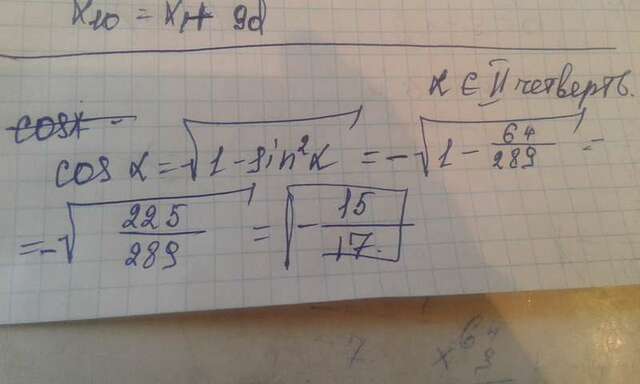 x₁₀ = x₁ + 9d
α ∈ II четверть
cosα =
cos α = √(1 - sin²α) = -√(1 - 64/289) =
= -√(225/289) = - 15/17.